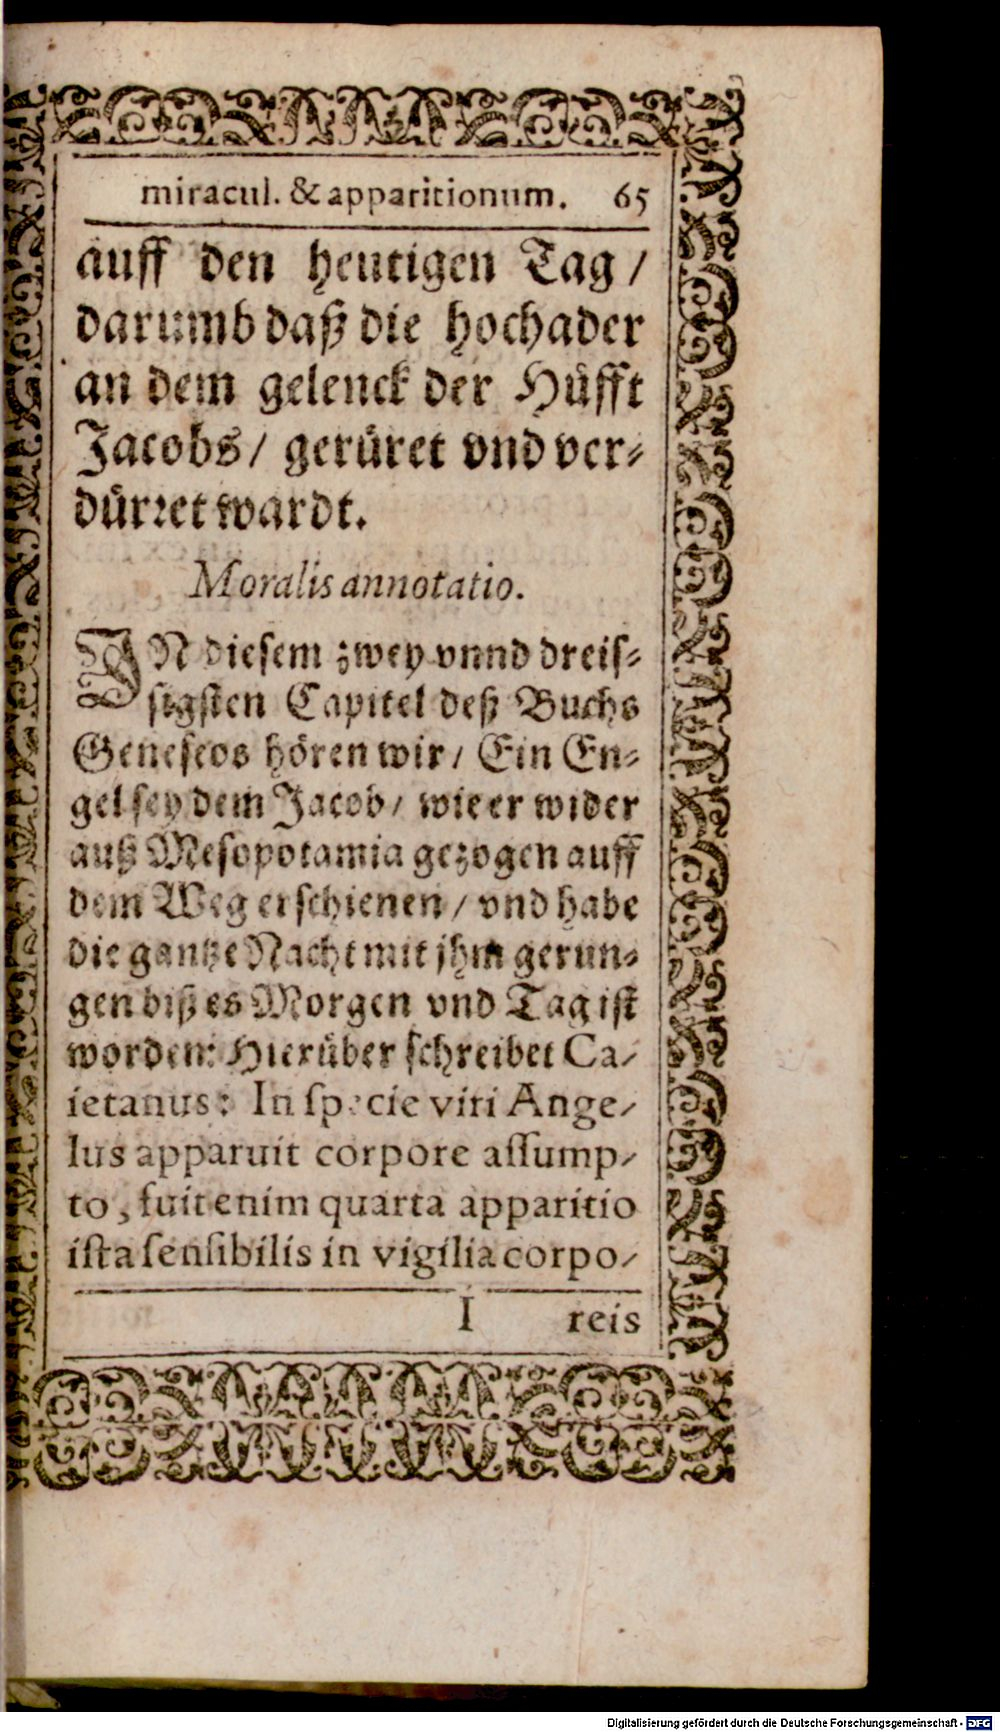 miracul. & apparitionum. 65
auff den heutigen Tag /
darumb daß die hochader
an dem gelenck der Hüfft
Jacobs / gerüret vnd ver-
dürret wardt.
Moralis annotatio.
IN diesem zwey vnnd dreis-
sigsten Capitel deß Buchs
Geneseos hören wir / Ein En-
gel sey dem Jacob / wie er wider
auß Mesopotamia gezogen auff
dem Weg erschienen / vnd habe
die gantze Nacht mit jhm gerun-
gen biß es Morgen vnd Tag ist
worden: Hierüber schreibet Ca-
ietanus: In specie viri Ange-
lus apparuit corpore assump-
to, fuit enim quarta apparitio
ista sensibilis in vigilia corpo-
I reis
Digitalisierung gefördert durch die Deutsche Forschungsgemeinschaft - DFG